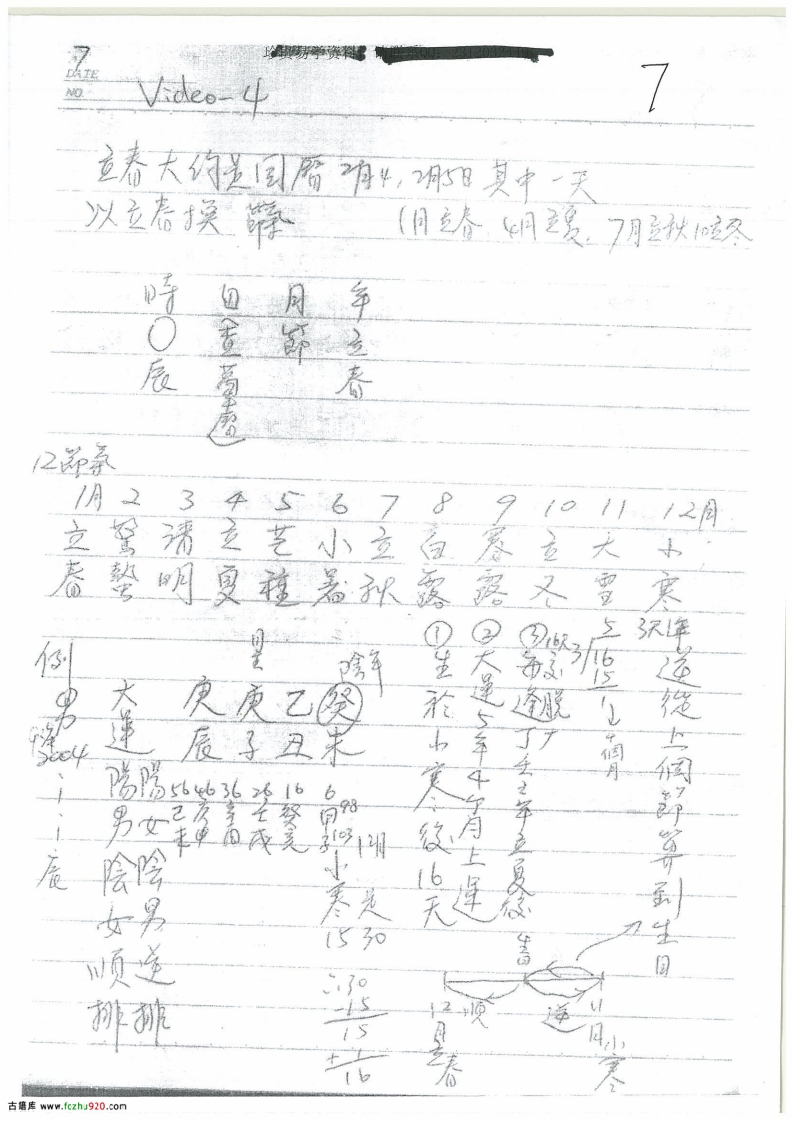 7
珍贵易学资料
DATE
NO.
Video-4
7
立春大約是国曆 2月4, 2月5日其中一天
以立春換節氣
1月立春 4月立夏. 7月立秋 10立冬
年立春
月節
日查萬曆
時〇辰
12節氣
1月 2 3 4 5 6 7 8 9 10 11 12月
立春 驚蟄 清明 立夏 芒種 小暑 立秋 白露 寒露 立冬 大雪 小寒
3天1年逆從上個節算到生日
5
3/16
15
1
4個月
③每逢丁壬之年立夏後
16天交脫
②大運5年4个月上運
①生於小寒後16天
陰年
日主
癸未
乙丑
庚子
庚辰
例
男
2004
辰
大運
6 16 26 36 46 56
甲子 癸亥 壬戌 辛酉 庚申 己未
98
103
陽男陰女順排
陽女陰男逆排
12月是30
小寒15
∴30
-15
15
+1
16
12月立春
順
逆
11月小寒
古籍库 www.fczhu920.com